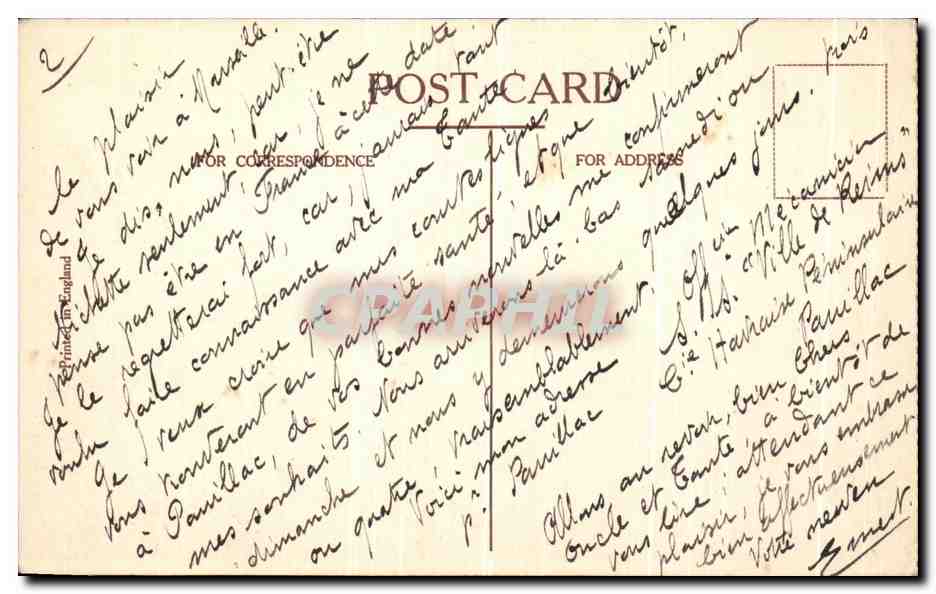 2
le plaisir
de vous voir à Marseille.
Je dis, nous, peut-être
Michette seulement, car, je ne
pense pas être en France à cette date
Je le regretterai fort, car, j'aurais tant
voulu faire connaissance avec ma Tante
Je veux croire que mes courtes lignes
vous trouveront en parfaite santé, et que bientôt,
à Pauillac, de vos bonnes nouvelles me confirmeront
mes souhaits. Nous arriverons là-bas samedi ou
dimanche et nous y demeurerons quelques jours. trois
ou quatre, vraisemblablement.
Voici mon adresse
p. Pauillac
Off. Mécanicien
S.S. "Ville de Reims"
Cie Havraise Péninsulaire
Pauillac
Allons, au revoir, bien chers
Oncle et Tante, à bientôt de
vous lire; attendant ce
plaisir, je vous embrasse
bien affectueusement
Votre neveu
Ernest.
POST CARD
FOR CORRESPONDENCE
FOR ADDRESS
Printed in England
CPAPHIL